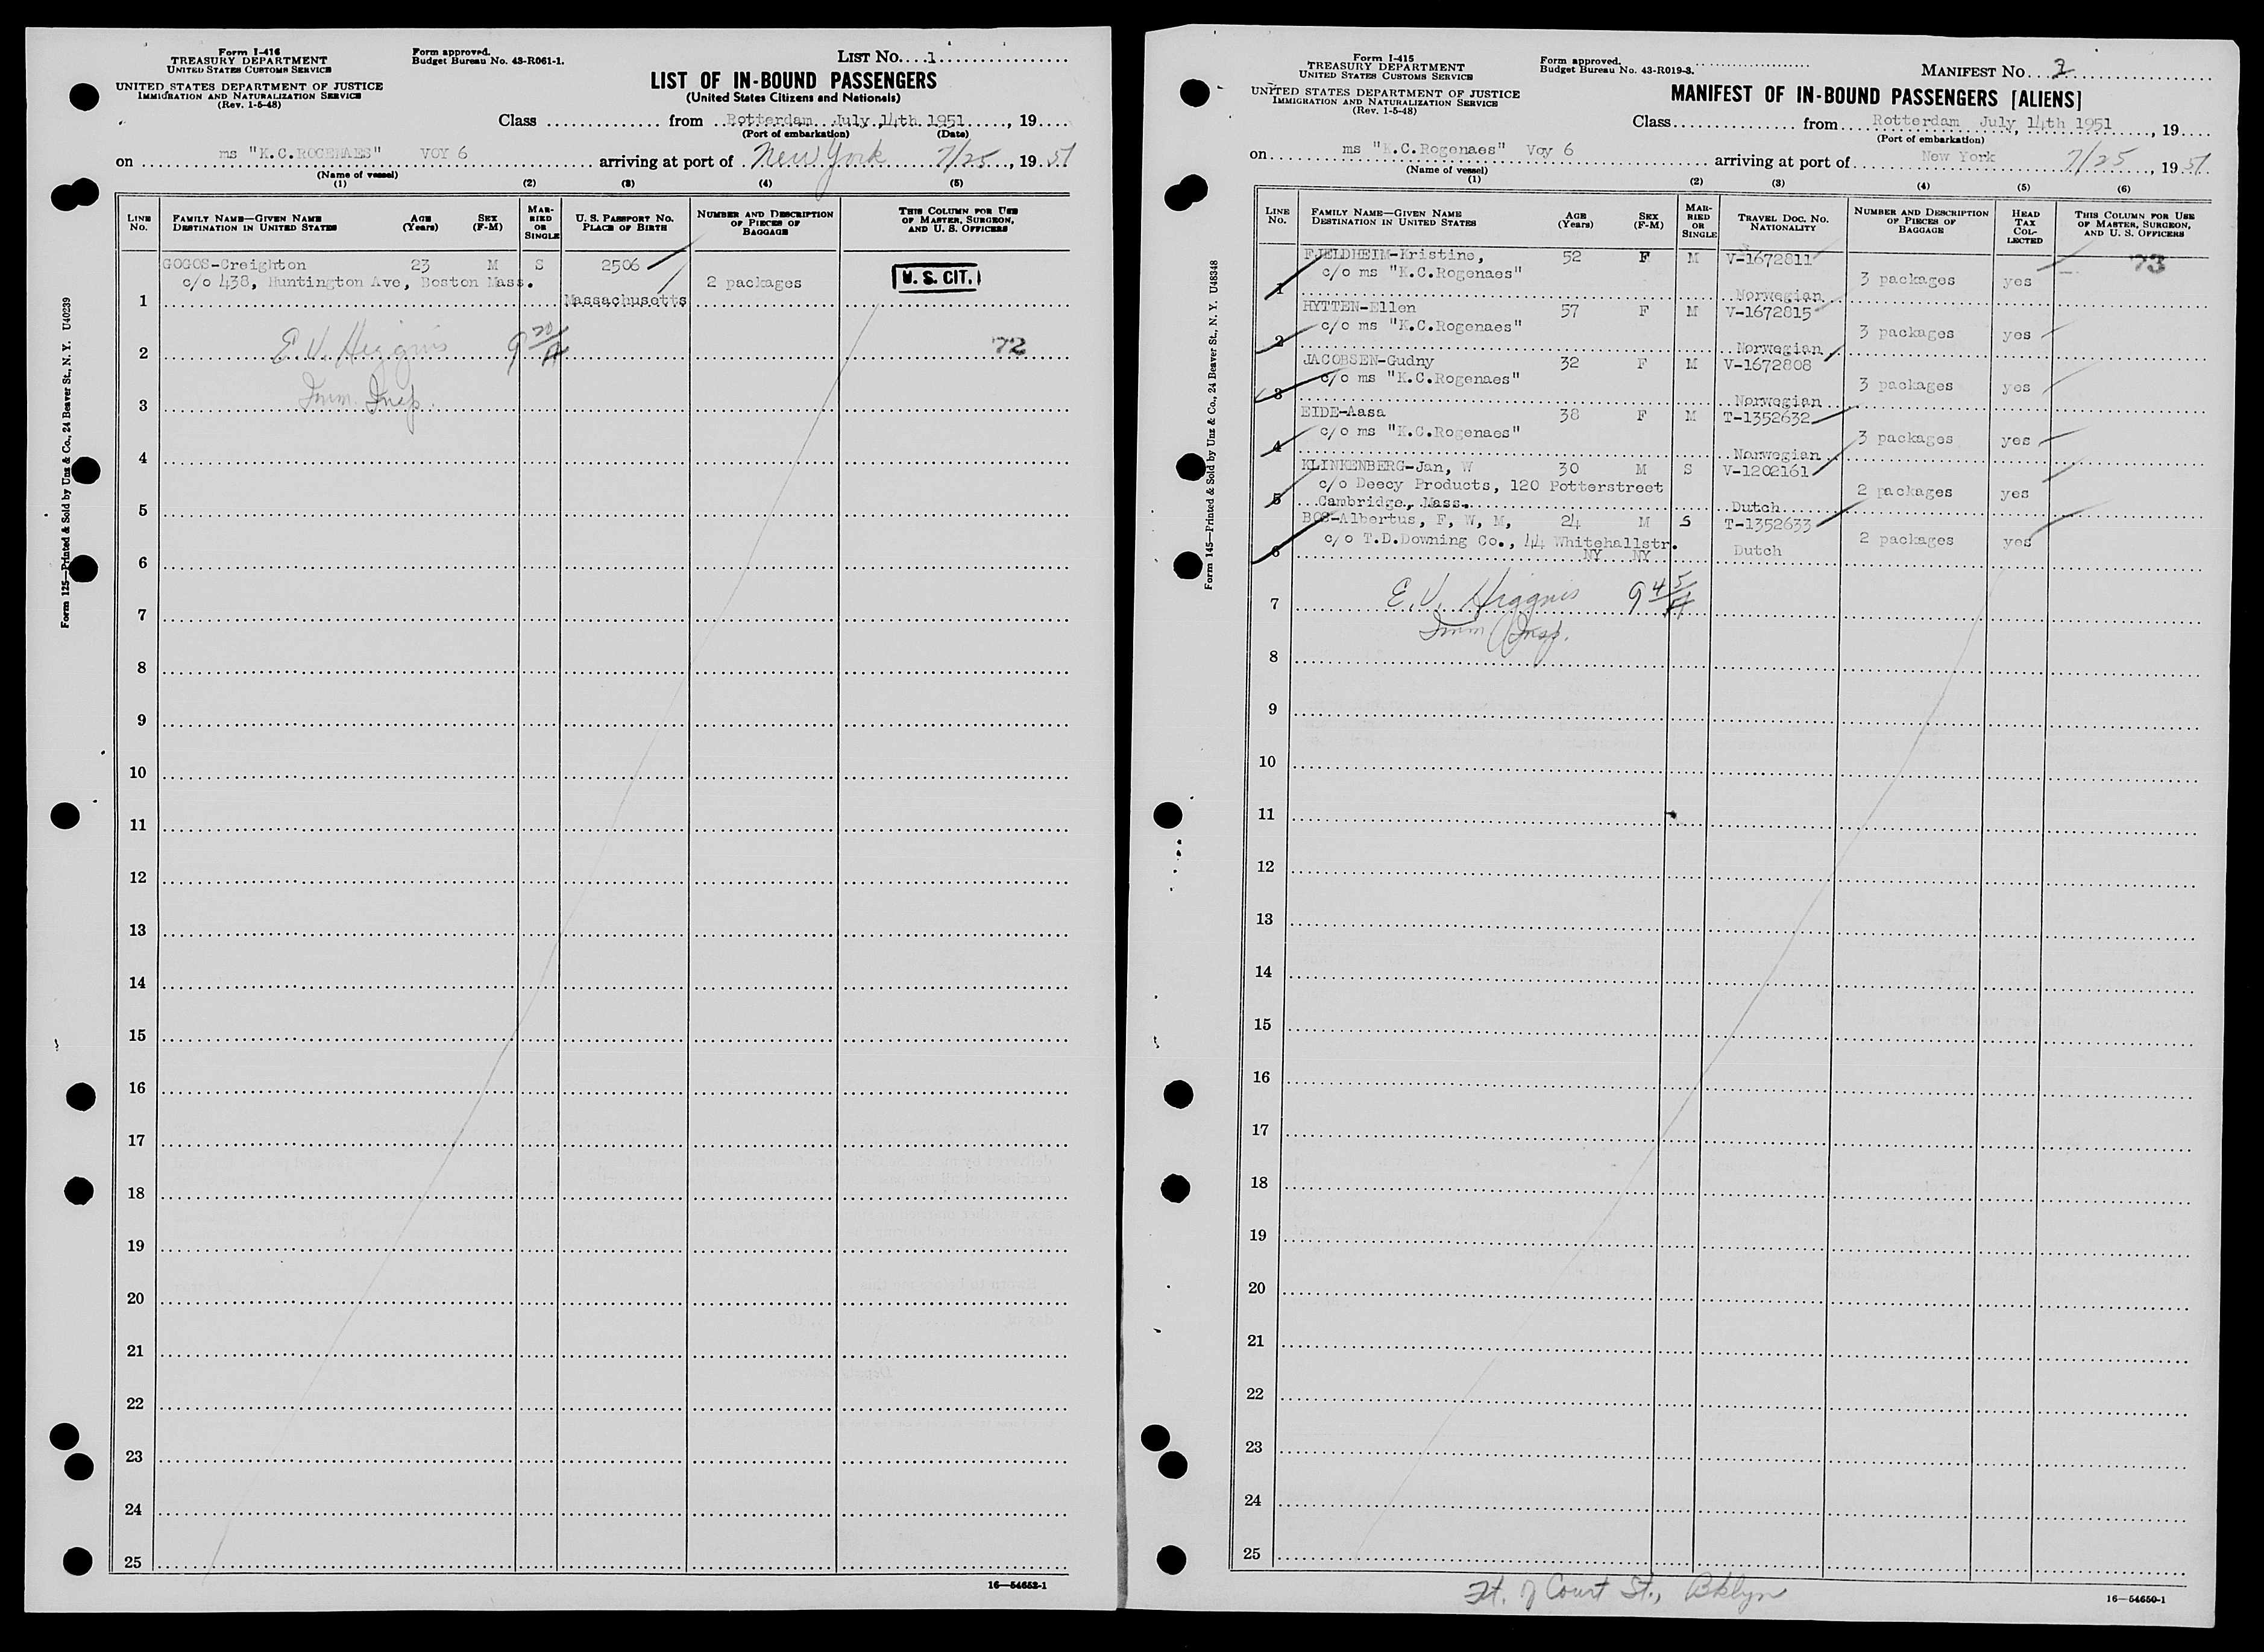 Form I-416
TREASURY DEPARTMENT
UNITED STATES CUSTOMS SERVICE
UNITED STATES DEPARTMENT OF JUSTICE
IMMIGRATION AND NATURALIZATION SERVICE
(Rev. 1-5-48)
Form approved.
Budget Bureau No. 43-R061-1.
LIST No. 1
LIST OF IN-BOUND PASSENGERS
(United States Citizens and Nationals)
Class from Rotterdam July 14th 1951, 19
(Port of embarkation) (Date)
on ms "K.C.ROGENAES" VOY 6 arriving at port of New York 7/25, 19 51
(Name of vessel)
(1) (2) (3) (4) (5)
LINE No. FAMILY NAME—GIVEN NAME DESTINATION IN UNITED STATES AGE (Years) SEX (F-M) MARRIED OR SINGLE U. S. PASSPORT NO. PLACE OF BIRTH NUMBER AND DESCRIPTION OF PIECES OF BAGGAGE THIS COLUMN FOR USE OF MASTER, SURGEON, AND U. S. OFFICERS
GOGOS-Creighton 23 M S 2506
c/o 438, Huntington Ave, Boston Mass. 2 packages U. S. CIT.
1 Massachusetts
2 E.V. Higgins 9 20/A 72
3 Imm. Insp.
4
5
6
7
8
9
10
11
12
13
14
15
16
17
18
19
20
21
22
23
24
25
16—54652-1
Form 125—Printed & Sold by Unz & Co., 24 Beaver St., N. Y. U40239
Form I-415
TREASURY DEPARTMENT
UNITED STATES CUSTOMS SERVICE
UNITED STATES DEPARTMENT OF JUSTICE
IMMIGRATION AND NATURALIZATION SERVICE
(Rev. 1-5-48)
Form approved.
Budget Bureau No. 43-R019-3.
MANIFEST No. 2
MANIFEST OF IN-BOUND PASSENGERS [ALIENS]
Class from Rotterdam July, 14th 1951, 19
(Port of embarkation)
on ms "K.C.Rogenaes" Voy 6 arriving at port of New York 7/25, 19 51
(Name of vessel)
(1) (2) (3) (4) (5) (6)
LINE No. FAMILY NAME—GIVEN NAME DESTINATION IN UNITED STATES AGE (Years) SEX (F-M) MARRIED OR SINGLE TRAVEL DOC. NO. NATIONALITY NUMBER AND DESCRIPTION OF PIECES OF BAGGAGE HEAD TAX COLLECTED THIS COLUMN FOR USE OF MASTER, SURGEON, AND U. S. OFFICERS
FJELDHEIM-Kristine, 52 F M V-1672811 73
c/o ms "K.C.Rogenaes" 3 packages yes
1 Norwegian
HYTTEN-Ellen 57 F M V-1672815
c/o ms "K.C.Rogenaes" 3 packages yes
2 Norwegian
JACOBSEN-Gudny 32 F M V-1672808
c/o ms "K.C.Rogenaes" 3 packages yes
3 Norwegian
EIDE-Aasa 38 F M T-1352632
c/o ms "K.C.Rogenaes" 3 packages yes
4 Norwegian
KLINKENBERG-Jan, W 30 M S V-1202161
c/o Deecy Products, 120 Potterstreet 2 packages yes
5 Cambridge, Mass. Dutch
BOS-Albertus, F, W, M, 24 M S T-1352633
c/o T.D.Downing Co., 44 Whitehallstr. 2 packages yes
6 NY NY Dutch
7 E.V. Higgins 9 45/A
Imm. Insp.
8
9
10
11
12
13
14
15
16
17
18
19
20
21
22
23
24
25
Ft. of Court St., Bklyn
16—54650-1
Form 145—Printed & Sold by Unz & Co., 24 Beaver St., N. Y. U48348